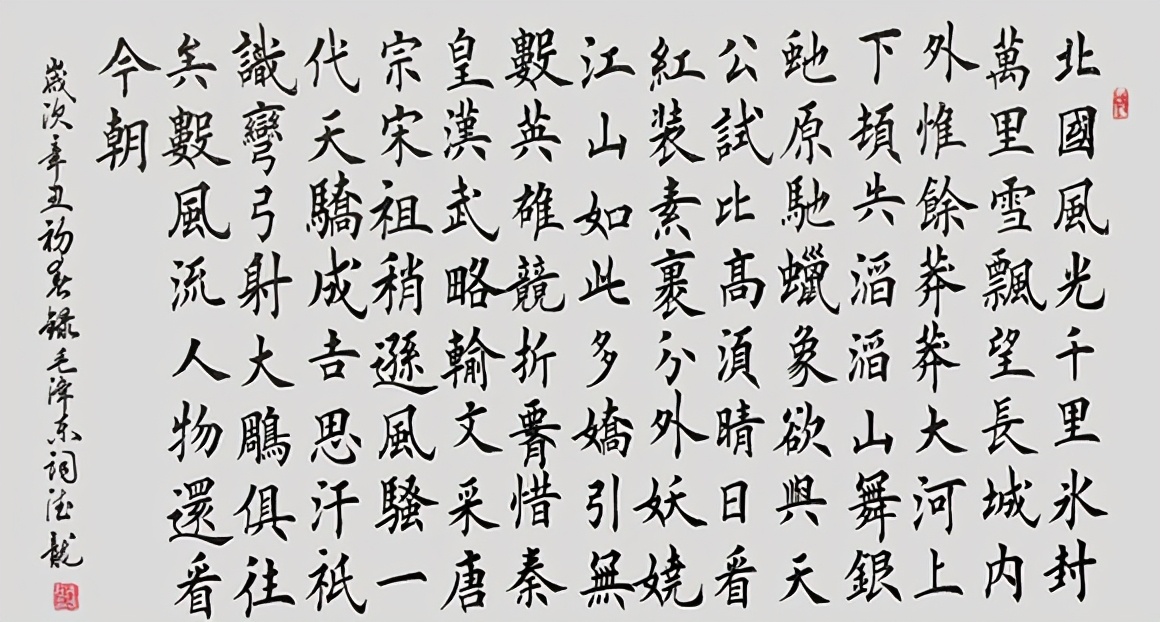 北國風光千里氷封
萬里雪飄望長城内
外惟餘莽莽大河上
下頓失滔滔山舞銀
虵原馳蠟象欲與天
公試比高須晴日看
紅裝素裹分外妖嬈
江山如此多嬌引無
數英雄競折腰惜秦
皇漢武略輸文采唐
宗宋祖稍遜風騷一
代天驕成吉思汗祇
識彎弓射大鵰俱往
矣數風流人物還看
今朝
歲次辛丑初春錄毛澤东詞德龍